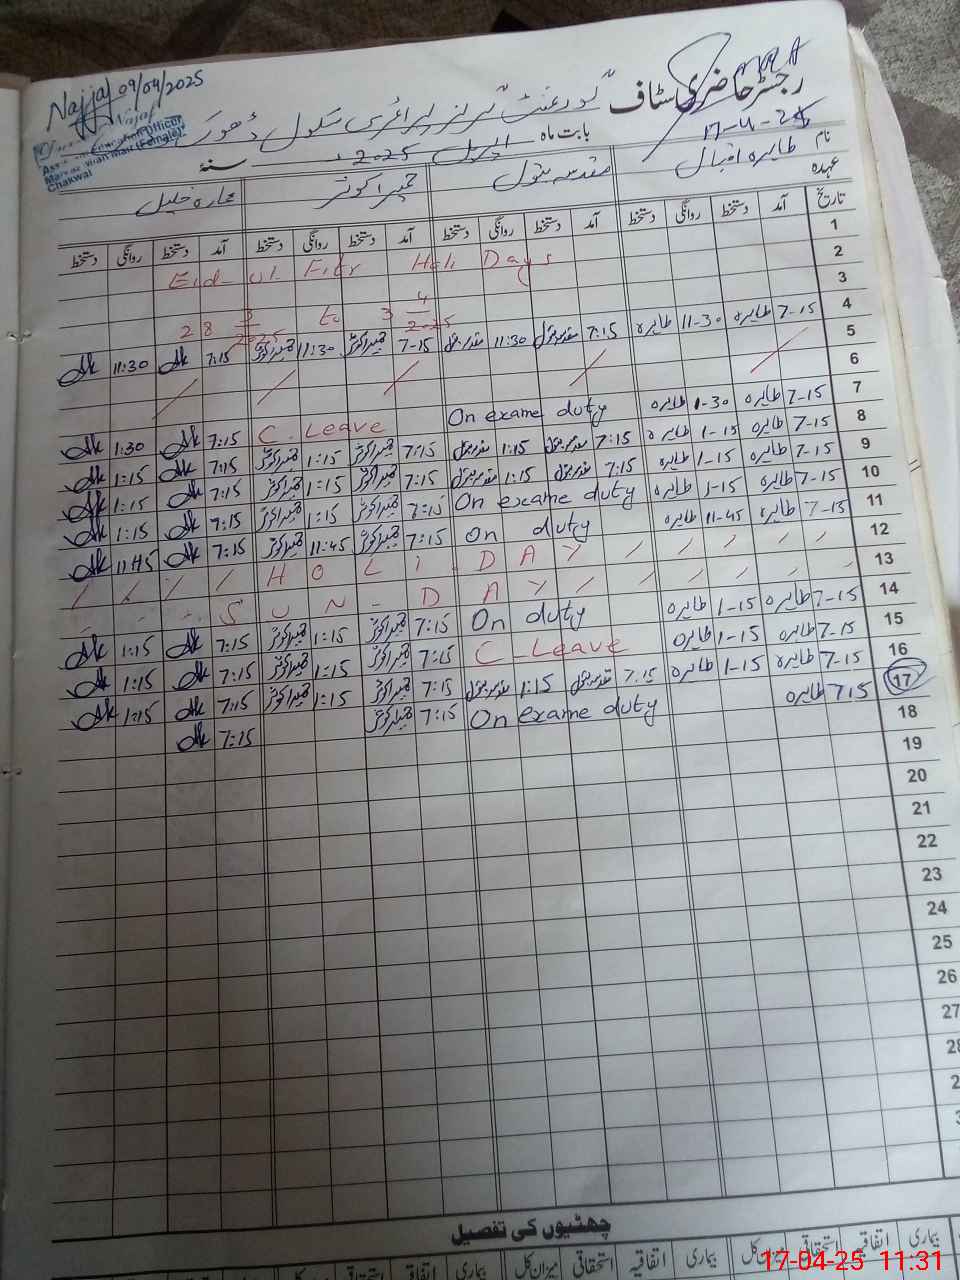 Najjaf 09/04/2025
رجسٹر حاضری سٹاف
گورنمنٹ گرلز پرائمری سکول ڈھور
Najaf
Officer
(Female)
Chakwal
17-4-25
بابت ماہ اپریل 2025 سنہ
نام طاہرہ اقبال مقدسہ بتول حمیرا کوثر عمارہ خلیل
عہدہ
تاریخ آمد دستخط روانگی دستخط آمد دستخط روانگی دستخط آمد دستخط روانگی دستخط آمد دستخط روانگی دستخط
1
2 Eid-ul-Fitr Holi Days
3
28 3/2025 to 3 4/2025
4 7-15 طاہرہ 11-30 طاہرہ 7:15 11:30 7-15 حمیرا کوثر 11:30 حمیرا کوثر 7:15 11:30
5
6
7 7-15 طاہرہ 1-30 طاہرہ On exame duty C. Leave 7:15 1:30
8 7-15 طاہرہ 1-15 طاہرہ 7:15 1:15 7:15 حمیرا کوثر 1:15 حمیرا کوثر 7:15 1:15
9 7-15 طاہرہ 1-15 طاہرہ 7:15 1:15 7:15 حمیرا کوثر 1:15 حمیرا کوثر 7:15 1:15
10 7-15 طاہرہ 1-15 طاہرہ On exame duty 7:15 حمیرا کوثر 1:15 حمیرا کوثر 7:15 1:15
11 7-15 طاہرہ 11-45 طاہرہ On duty 7:15 حمیرا کوثر 11:45 حمیرا کوثر 7:15 11:45
12 HOLI DAY
13 SUN-DAY
14 7-15 طاہرہ 1-15 طاہرہ On duty 7:15 حمیرا کوثر 1:15 حمیرا کوثر 7:15 1:15
15 7-15 طاہرہ 1-15 طاہرہ C-Leave 7:15 حمیرا کوثر 1:15 حمیرا کوثر 7:15 1:15
16 7-15 طاہرہ 1-15 طاہرہ 7:15 1:15 7:15 حمیرا کوثر 1:15 حمیرا کوثر 7:15 1:15
17 7:15 طاہرہ On exame duty 7:15 حمیرا کوثر 7:15
18
19
20
21
22
23
24
25
26
27
28
چھٹیوں کی تفصیل
بیماری اتفاقیہ استحقاقی میزان کل بیماری اتفاقیہ استحقاقی میزان کل بیماری اتفاقیہ استحقاقی
17-04-25 11:31